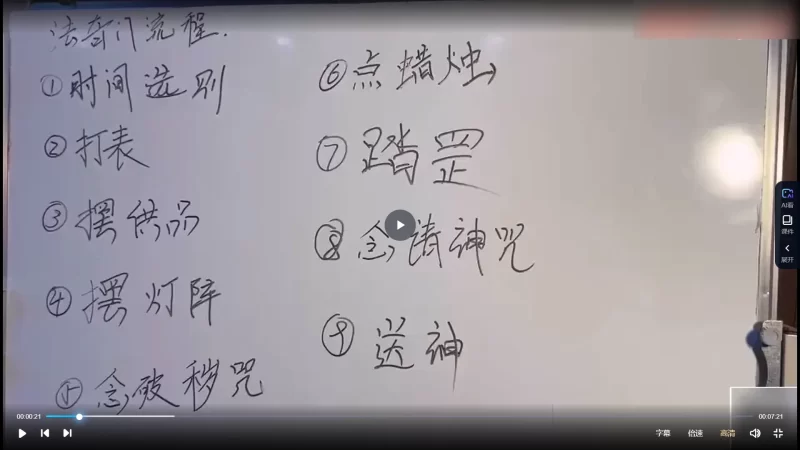 法奇门流程.
①时间选别
②打表
③摆供品
④摆灯阵
⑤念破秽咒
⑥点蜡烛
⑦踏罡
⑧念请神咒
⑨送神
AI看
课件
展开
00:00:21
00:07:21
字幕
倍速
高清